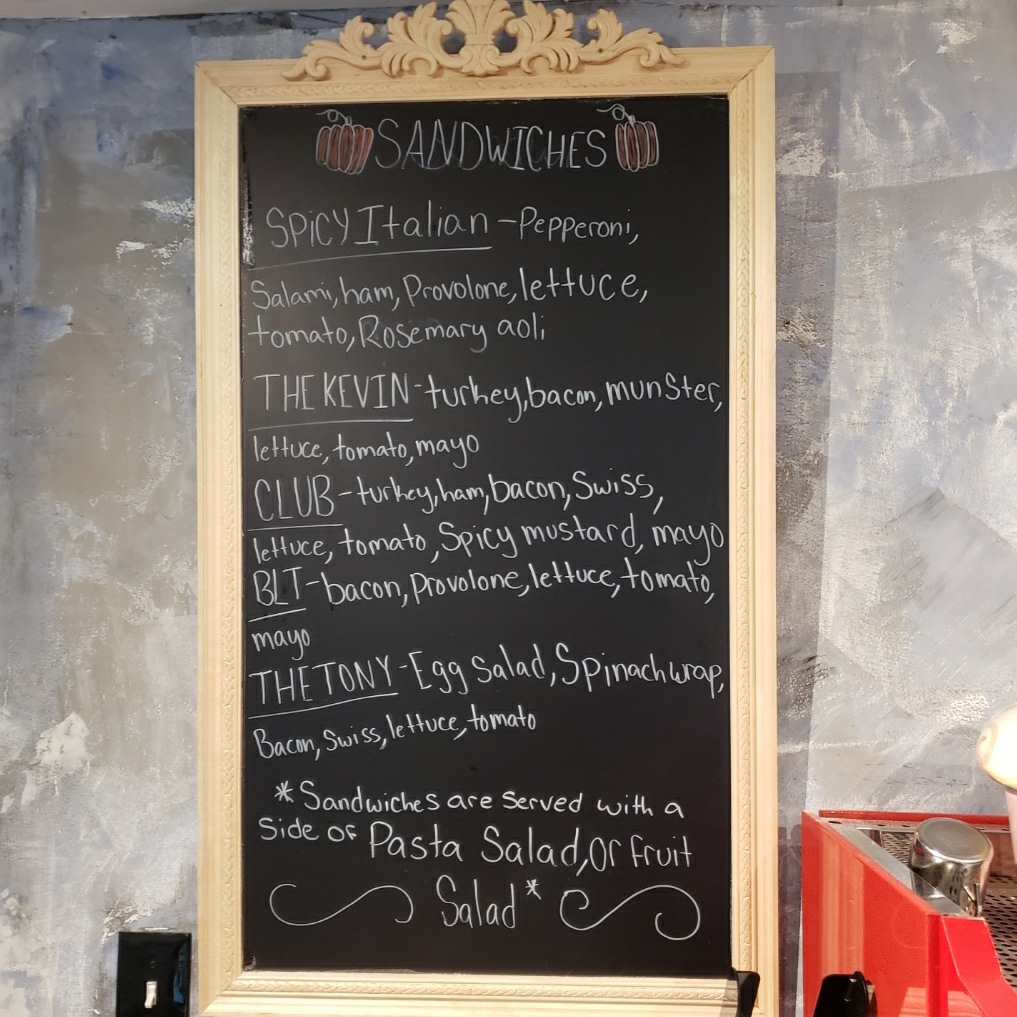 SANDWICHES
SPICY Italian - Pepperoni,
Salami, ham, Provolone, lettuce,
tomato, Rosemary aoli
THE KEVIN - turkey, bacon, munster,
lettuce, tomato, mayo
CLUB - turkey, ham, bacon, Swiss,
lettuce, tomato, Spicy mustard, mayo
BLT - bacon, provolone, lettuce, tomato,
mayo
THE TONY - Egg Salad, Spinach wrap,
Bacon, Swiss, lettuce, tomato
*Sandwiches are served with a
side of Pasta Salad, Or fruit
Salad*